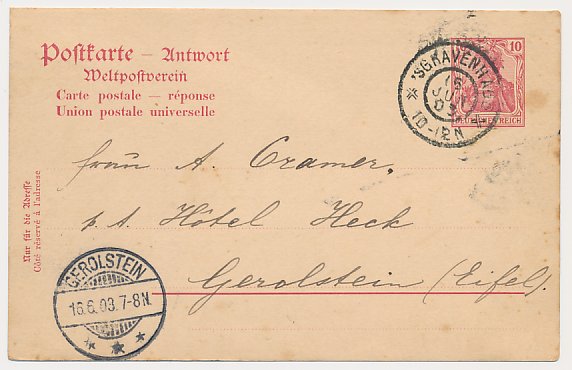 Postkarte — Antwort
Weltpostverein
Carte postale — réponse
Union postale universelle
10
DEUTSCHES REICH
'SGRAVENHAGE
JUN
03
10-12N
Nur für die Adresse
Côté réservé à l'adresse
Frau A. Cramer,
p. A. Hôtel Heck
Gerolstein (Eifel).
GEROLSTEIN
16.6.03.7-8N.